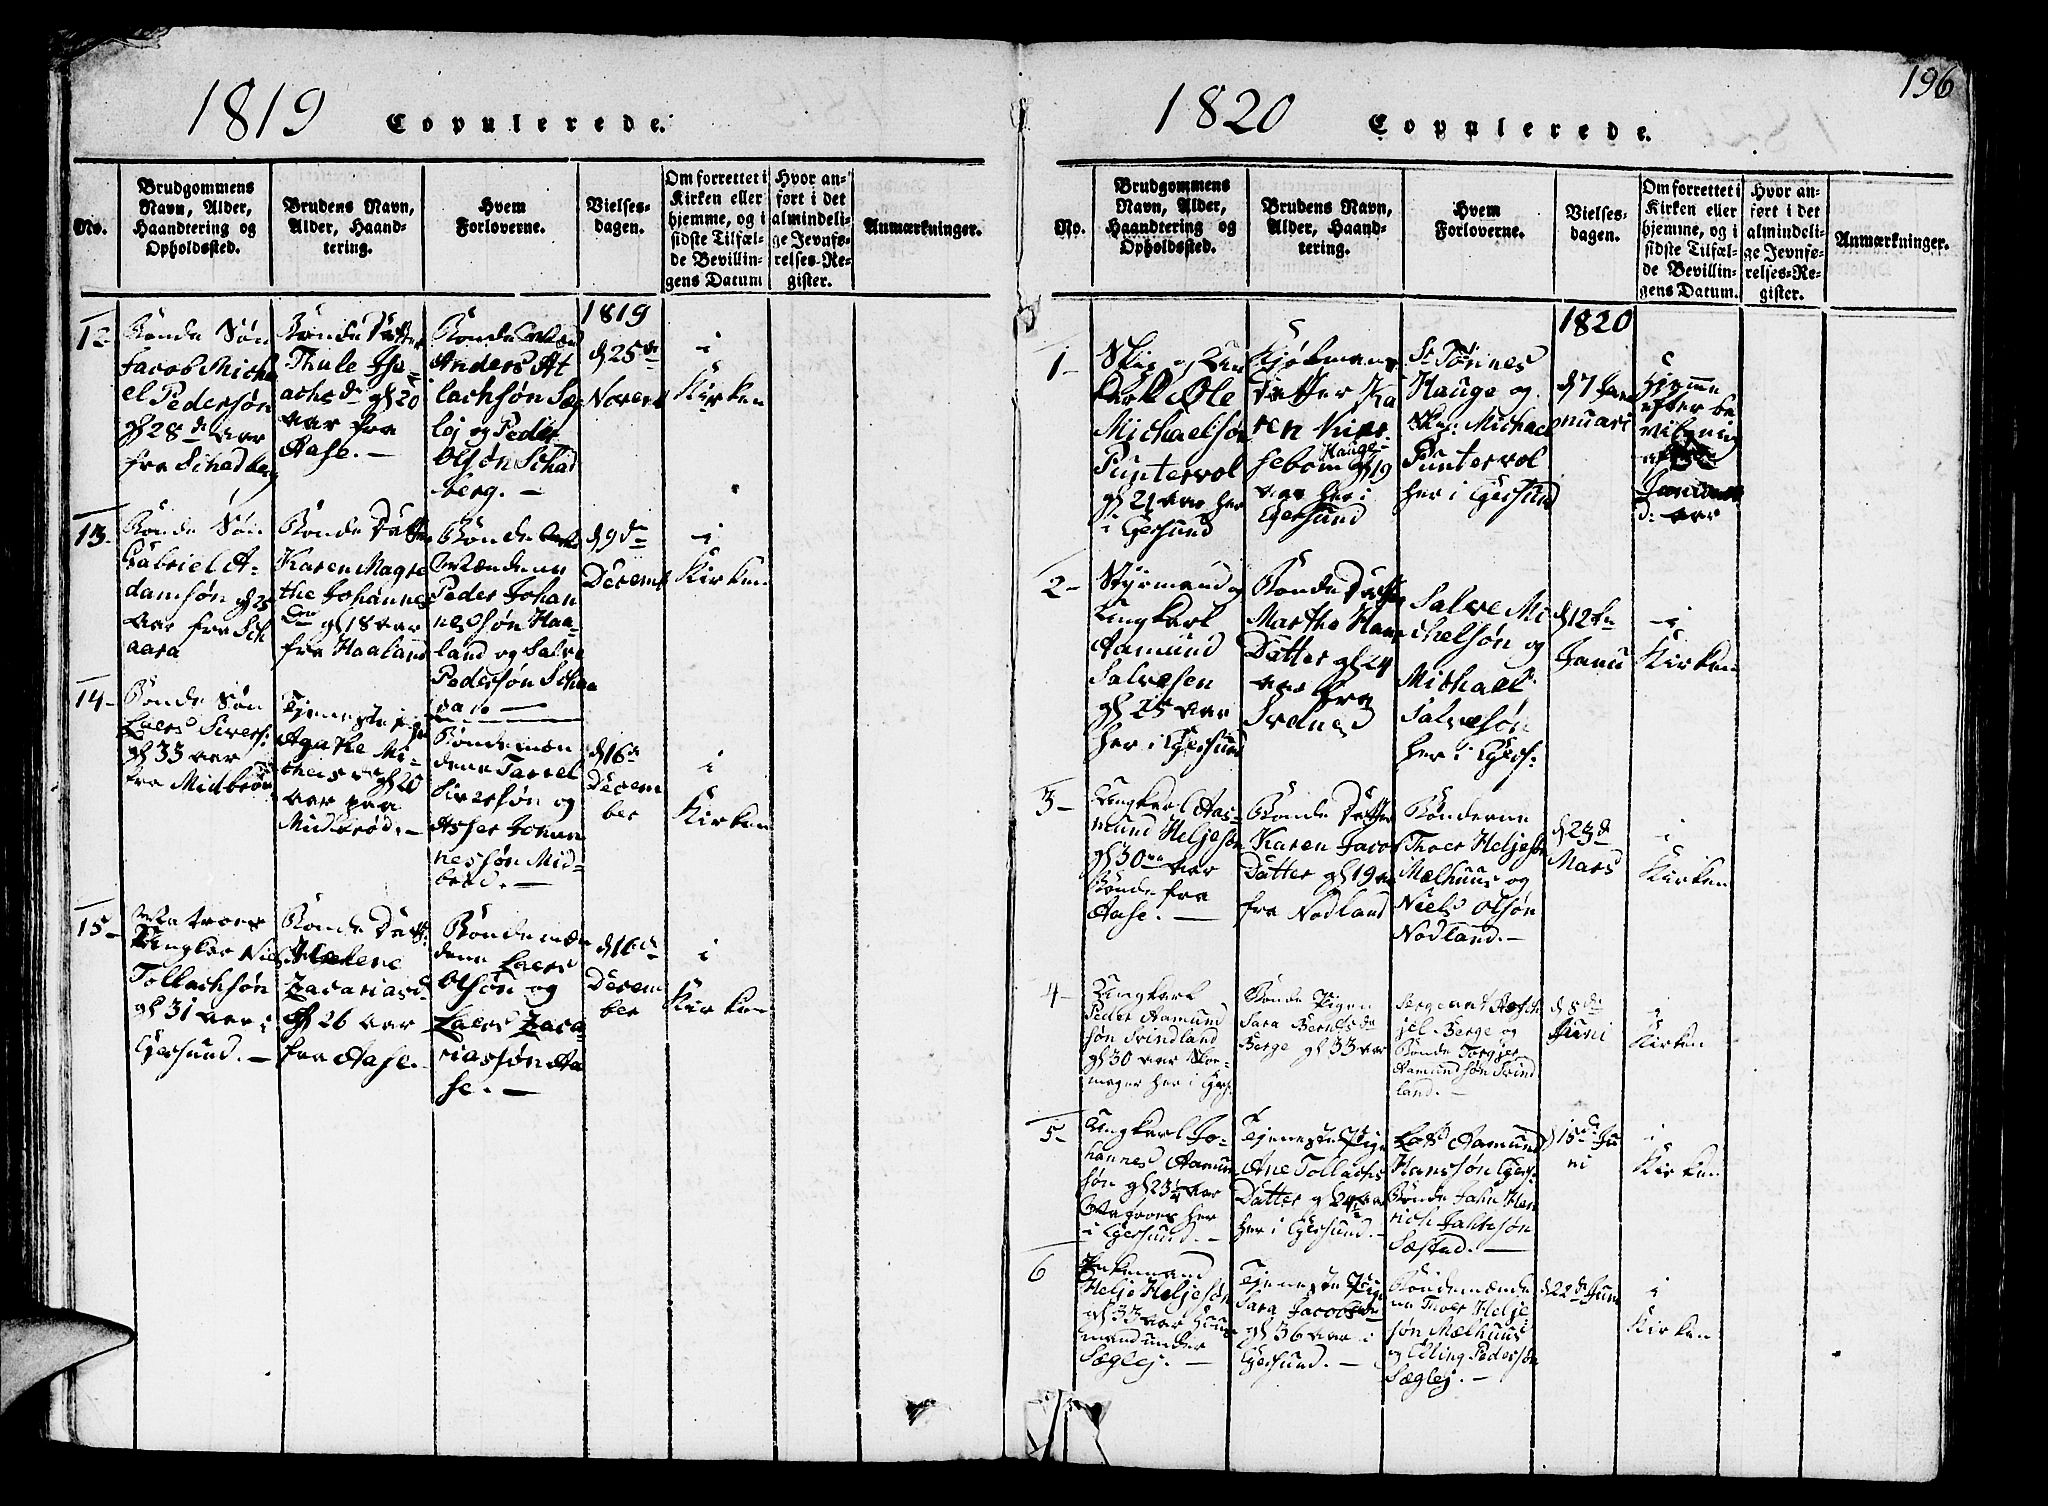 1819 Copulerede.
No.
Brudgommens
Navn, Alder,
Haandtering og
Opholdssted.
Brudens Navn,
Alder, Haand-
tering.
Hvem
Forloverne.
Vielses-
dagen.
Om forrettet i
Kirken eller
hjemme, og i
sidste Tilfæl-
de Bevillin-
gens Datum
Hvor an-
ført i det
almindeli-
ge Jevnfø-
relses-Re-
gister.
Anmærkninger.
1819
12
Bonde Søn
Jacob Micha
el Pedersøn
gl 28 de aar
fra Schadberg
Bonde Datter
Thule Isa-
achsd gl 20
aar fra
Aase. -
Bonde
Anders At
lachsøn Sæg
loj og Peder
Olsøn Schad
berg. -
d 25 de
Novemb
i
Kirken
13.
Bonde Søn
Gabriel A-
damsøn gl 25
aar fra Sch
aara
Bonde Datter
Karen Magre
the Johannes
Dtr gl 18 aar
fra Haaland
Bonde
Mændene
Peder Johan
nessøn Haa-
land og Salve
Pedersøn Scha
ran -
d 9 de
Decemb
i
Kirken
14-
Bonde Søn
Laers Sivers:
gl 33 aar
fra Midbrød
Tjenestepige
Agathe Mi-
gl 20
aar paa
Midbrød. -
Bondemæn
dene Tarrel
Siversøn og
Asser Johan
nessøn Mid-
brød. -
d 16 de
Decem
ber
i
Kirken
15-
Matroes
Ungkar Niels
Tollachsøn
gl 31 aar i
Egersund. -
Bonde Datt:
Helene
Zacariasd:
gl 26 aar
fra Aase. -
Bondemæn
dene Laers
Olsøn og
Laers Zaca-
riassøn Aa
se. -
d 16 de
Decem
ber
i
Kirken
196
1820 Copulerede.
No.
Brudgommens
Navn, Alder,
Haandtering og
Opholdssted.
Brudens Navn,
Alder, Haand-
tering.
Hvem
Forloverne.
Vielses-
dagen.
Om forrettet i
Kirken eller
hjemme, og i
sidste Tilfæl-
de Bevillin-
gens Datum.
Hvor an-
ført i det
almindeli-
ge Jevnfø-
relses-Re-
gister.
Anmærkninger.
1820
1-
Ole
Michaelsøn
Puntervol
gl 21 aar her
i Egersund
Kjøbmands
Datter Ka
ren
Hauge
gl 19
aar her i
Egersund
Sr Tønnes
Hauge og
Michael
Puntervol
her i Egersund
d 7 Ja
nuari
Hjemme
efter be
vilgning
af
Januari
d: aar
2-
Styrmand og
Ungkarl
Aamund
Salvesen
gl 25 aar
her i Egersund
Bonde Datter
Marthe Hans
Datter gl 24
aar fra
Svanes
Salve Mi
chelsøn og
Michael
Salvesøn
her i Egers:
d 12 te
Janu
i
Kirken
3-
Ungkarl Aas-
mund Heljesøn
gl 30 aar
Bonde fra
Aase. -
Bonde Datter
Karen Jacobs
Datter gl 19 aar
fra Nodland
Bønderne
Thoer Heljesøn
Mælhuus og
Niels Olsøn
Nodland. -
d 23 de
Mars
i
Kirken
4-
Ungkarl
Peder Aamund
søn Svindland
gl 30 aar Skoe-
mager her i Egers:
Bonde Pigen
Sara Berntsd
Berge gl 33 aar
Sergeant Asch
jel Berge og
Bonde Torgjer
Aamundsøn Svind
land. -
d 8 de
Juni
i
Kirken
5-
Ungkarl Jo-
hannes Aamun
søn gl 23 1/4 aar
Matroes her
i Egersund. -
TjenestePige
Ane Tollachs
Datter gl 24 aar
her i Egersund. -
Lods Aamund
Hanssøn Egers:
Bonde John Hen
rich Jahnsøn
Sæstad. -
15 de Ju
ni
i
Kirken
6
Enkemand
Helje Heljesøn
gl 33 aar Huus
mand under
Sæglej. -
TjenestePige
Sara Jacobsdr
gl 36 aar i
Egersund. -
Bondemænde
ne Thoer Helje
søn Mælhuus
og Elling Pedersøn
Sæglej. -
d 22 de Juni
i
Kirken